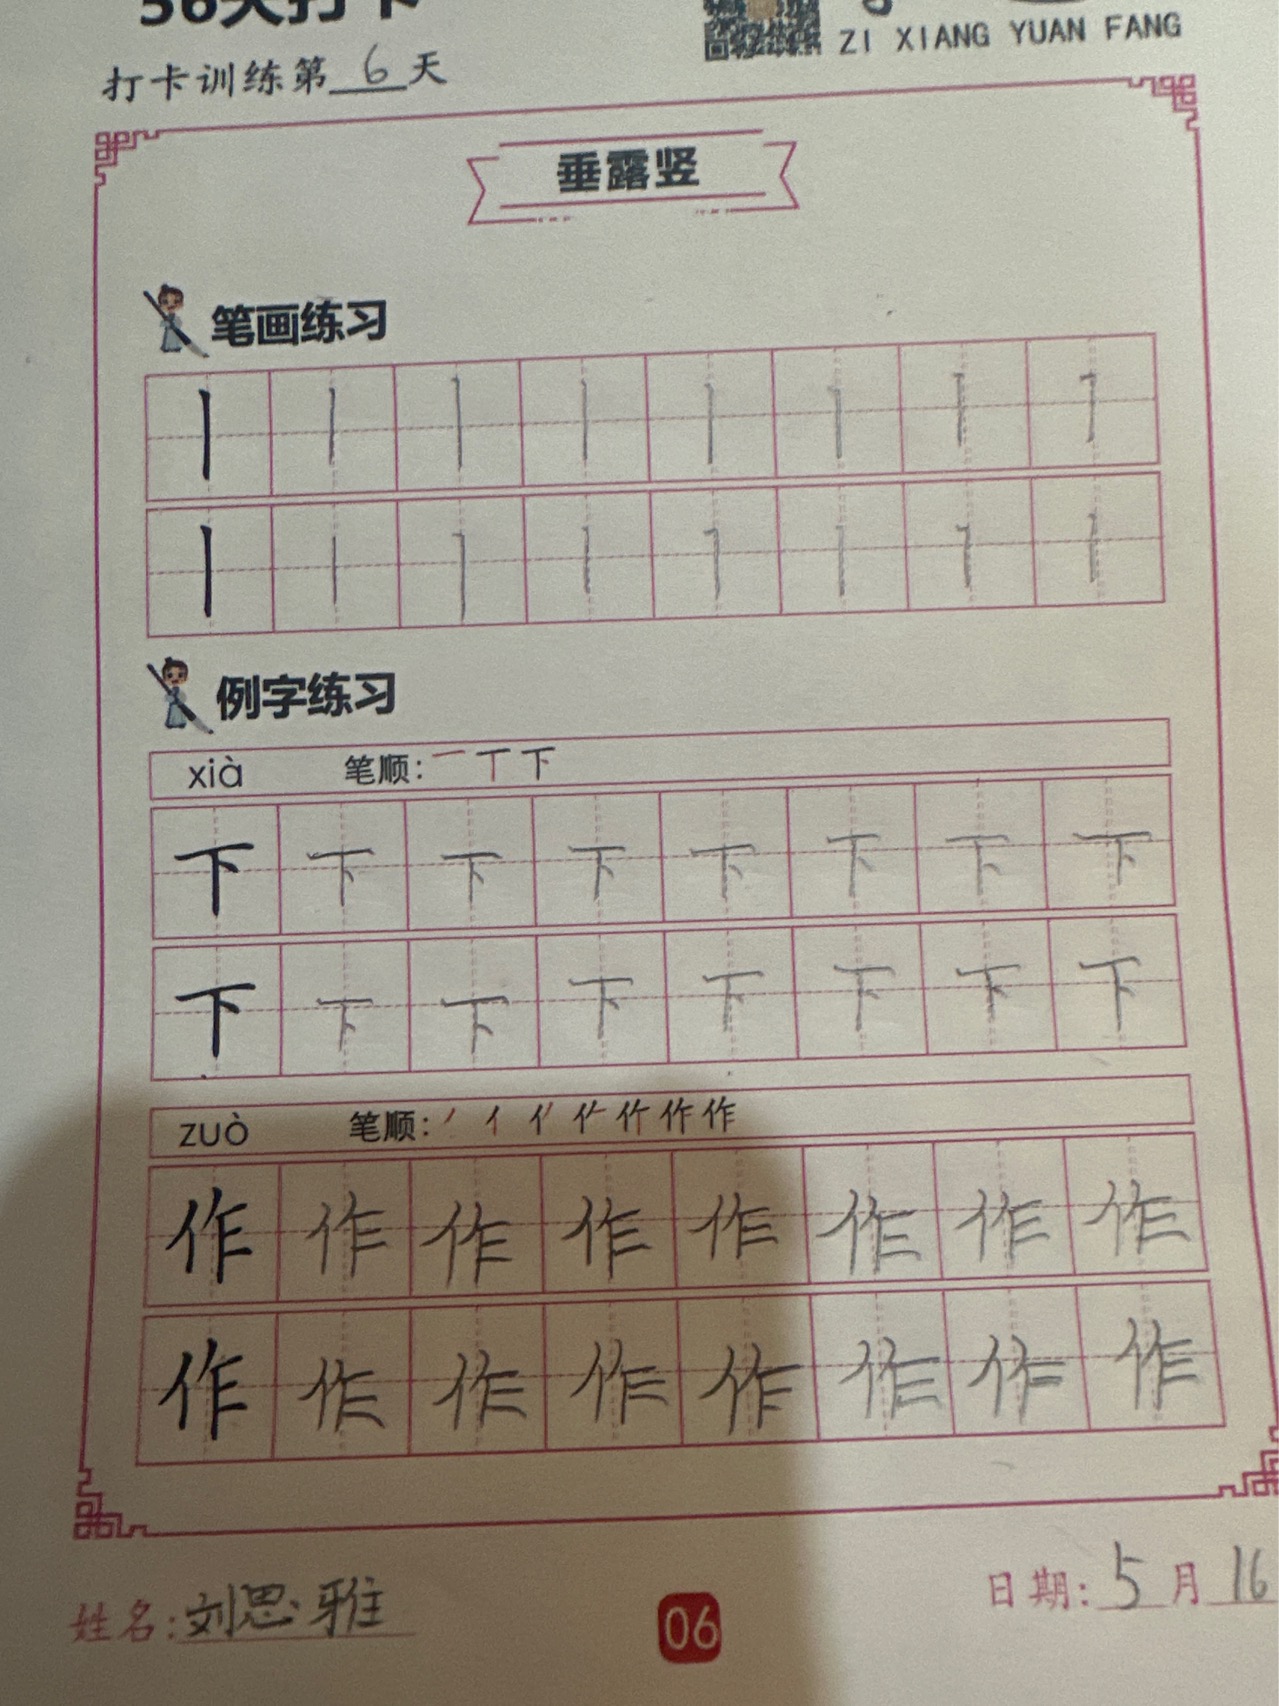 56天打卡
ZI XIANG YUAN FANG
打卡训练第6天
垂露竖
笔画练习
丨丨丨丨丨丨丨丨
丨丨丨丨丨丨丨丨
例字练习
xià 笔顺: 一丅下
下下下下下下下下
下下下下下下下下
zuò 笔顺: 作
作作作作作作作作
作作作作作作作作
姓名: 刘思雅
06
日期: 5月16